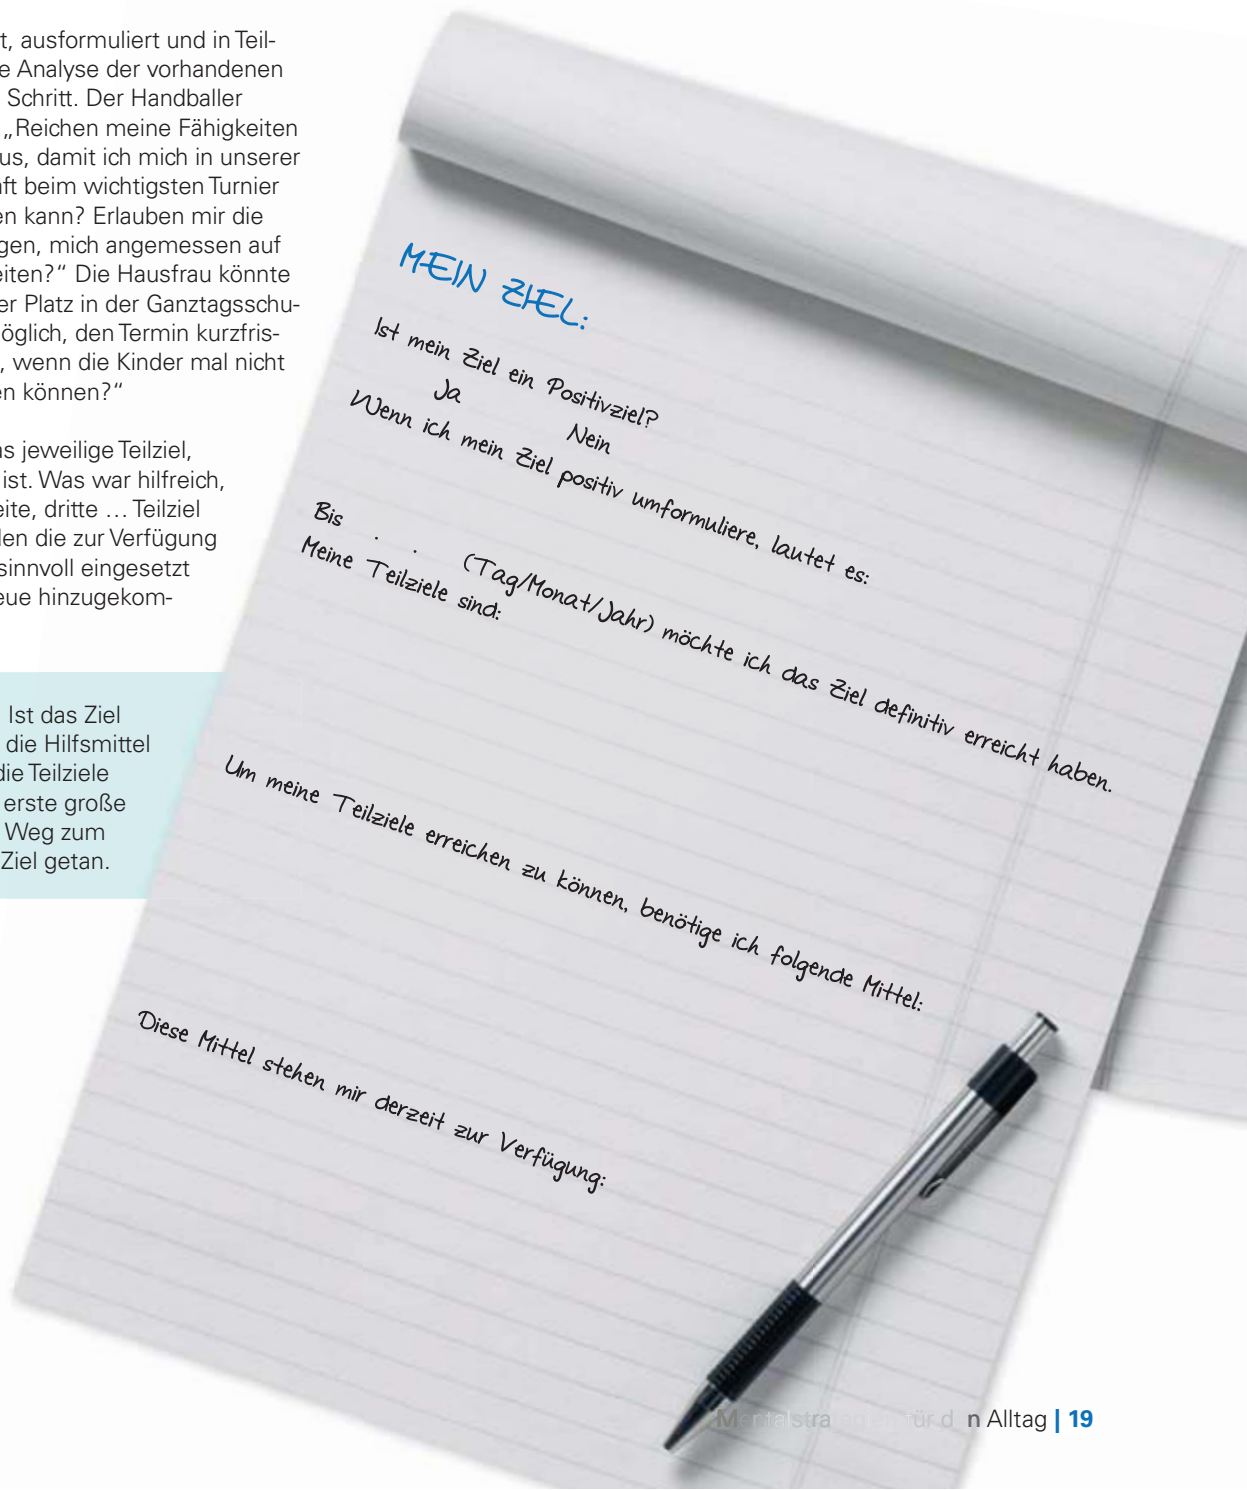 t, ausformuliert und in Teil-
e Analyse der vorhandenen
Schritt. Der Handballer
„Reichen meine Fähigkeiten
us, damit ich mich in unserer
ft beim wichtigsten Turnier
en kann? Erlauben mir die
gen, mich angemessen auf
eiten?“ Die Hausfrau könnte
er Platz in der Ganztagsschu-
öglich, den Termin kurzfris-
, wenn die Kinder mal nicht
en können?“
as jeweilige Teilziel,
ist. Was war hilfreich,
eite, dritte … Teilziel
den die zur Verfügung
sinnvoll eingesetzt
eue hinzugekom-
Ist das Ziel
die Hilfsmittel
die Teilziele
erste große
Weg zum
Ziel getan.
MEIN ZIEL:
Ist mein Ziel ein Positivziel?
Ja Nein
Wenn ich mein Ziel positiv umformuliere, lautet es:
Bis . . (Tag/Monat/Jahr) möchte ich das Ziel definitiv erreicht haben.
Meine Teilziele sind:
Um meine Teilziele erreichen zu können, benötige ich folgende Mittel:
Diese Mittel stehen mir derzeit zur Verfügung:
Alltag | 19